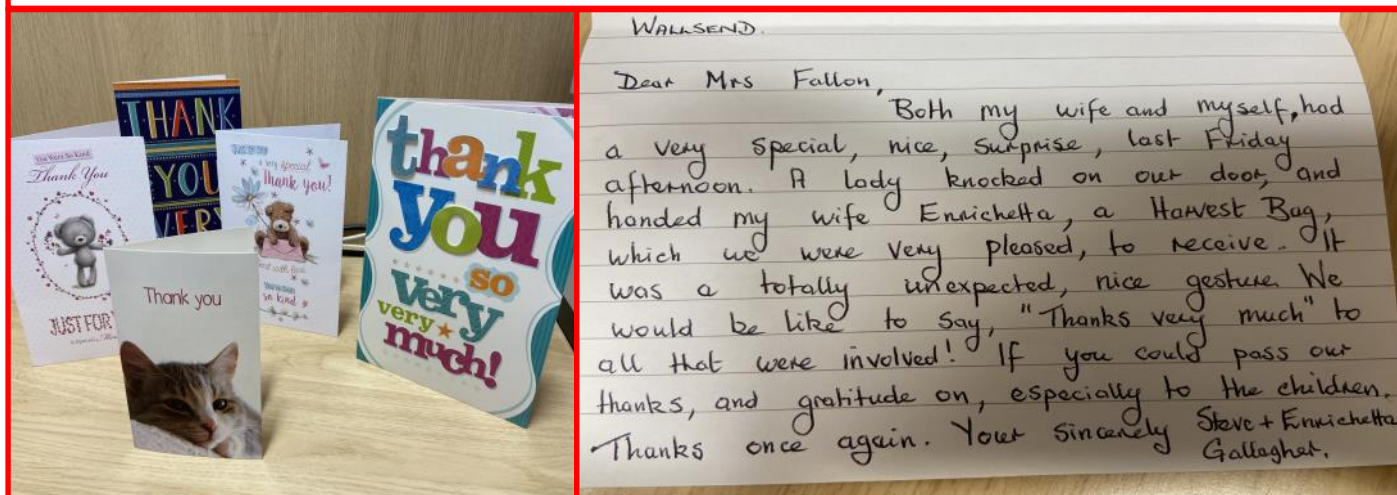 THANK
YOU
VERY
You Were So Kind
Thank You
JUST FOR
a very special
Thank you!
so kind
Thank you
thank
you
so
very
very
much!
WALLSEND.
Dear Mrs Fallon,
Both my wife and myself, had
a very special, nice, surprise, last Friday
afternoon. A lady knocked on our door, and
handed my wife Enrichetta, a Harvest Bag,
which we were very pleased, to receive. It
was a totally unexpected, nice gesture. We
would be like to say, "Thanks very much" to
all that were involved! If you could pass our
thanks, and gratitude on, especially to the children.
Thanks once again. Your Sincerely Steve + Enrichetta
Gallagher.